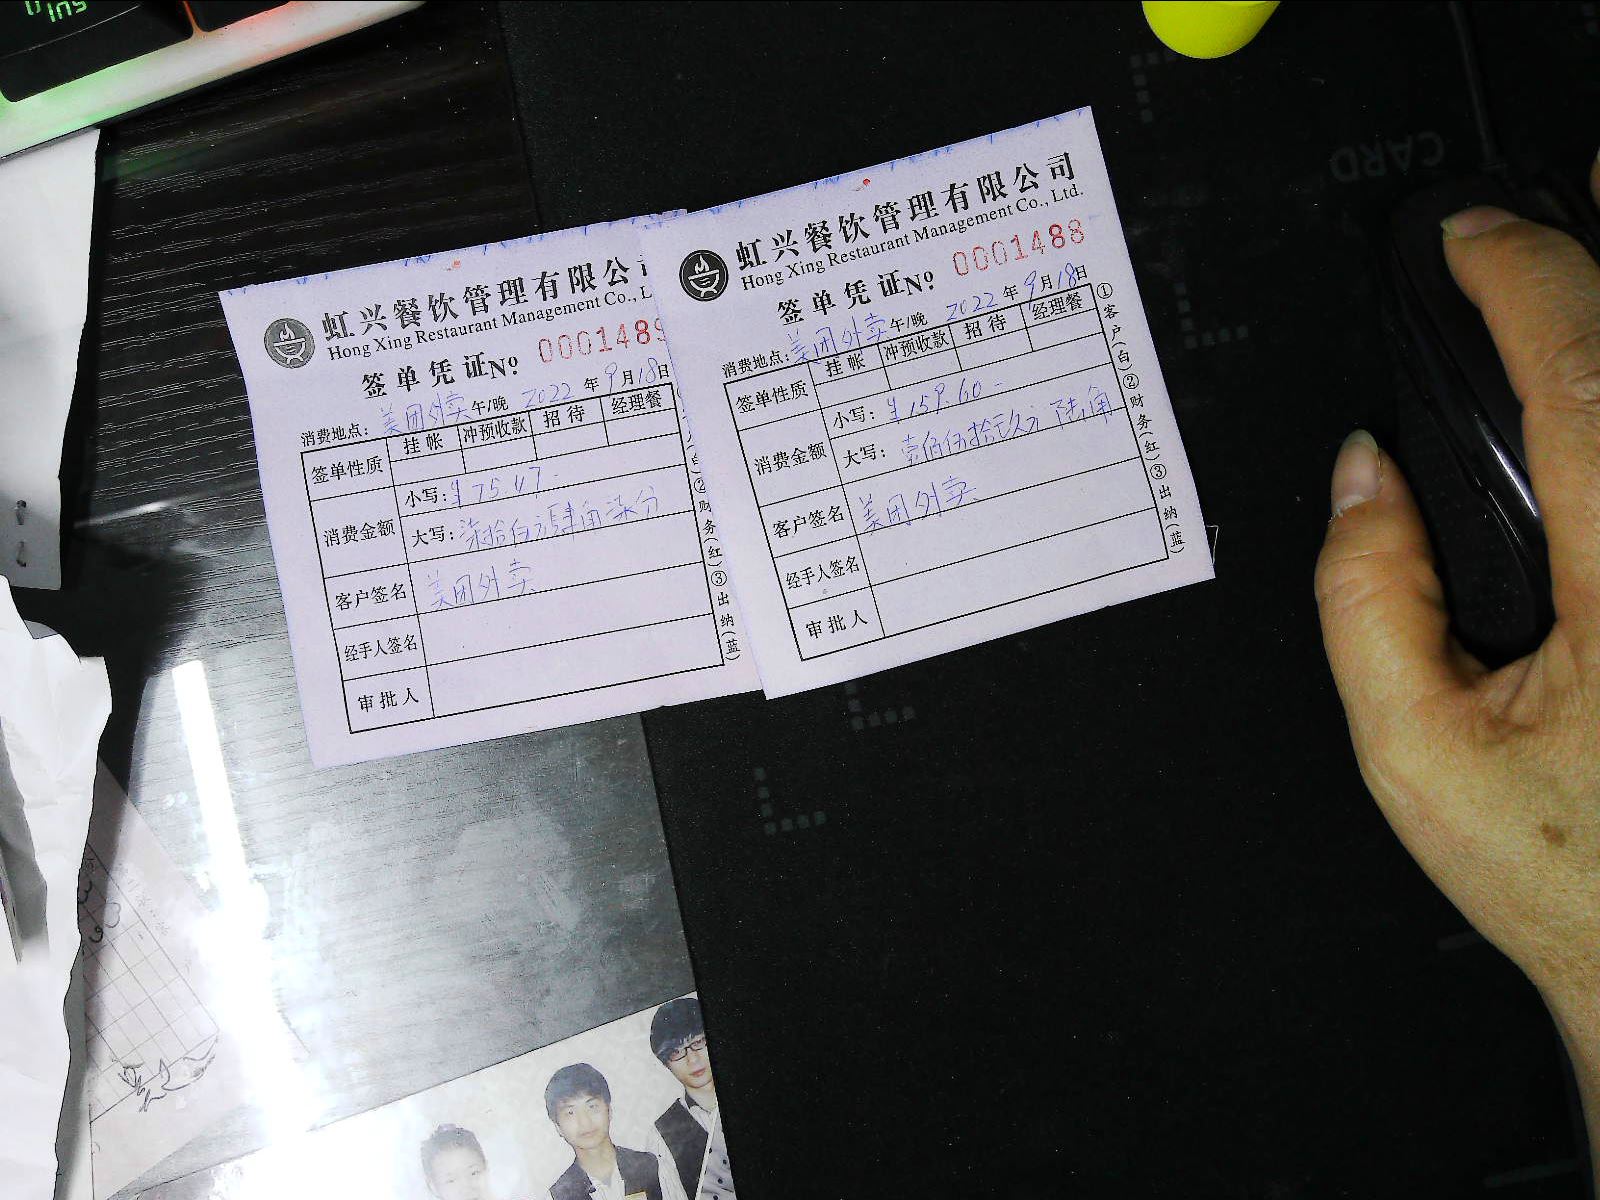 虹兴餐饮管理有限公
Hong Xing Restaurant Management Co., L
签单凭证No. 000148
2022年9月18日
消费地点:美团外卖 午/晚
签单性质 挂帐 冲预收款 招待 经理餐
消费金额
小写:¥75.47-
大写:柒拾伍元肆角柒分
客户签名 美团外卖
经手人签名
审批人
②财务(红)③出纳(蓝)
虹兴餐饮管理有限公司
Hong Xing Restaurant Management Co., Ltd.
签单凭证No. 0001488
2022年9月18日
消费地点:美团外卖 午/晚
签单性质 挂帐 冲预收款 招待 经理餐
消费金额
小写:¥159.60-
大写:壹佰伍拾玖元陆角
客户签名 美团外卖
经手人签名
审批人
①客户(白)②财务(红)③出纳(蓝)
CARD